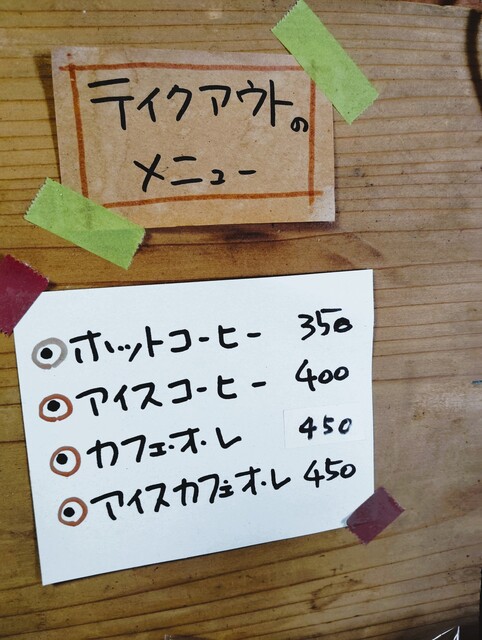 テイクアウトの
メニュー
ホットコーヒー 350
アイスコーヒー 400
カフェ・オ・レ 450
アイスカフェオ・レ 450